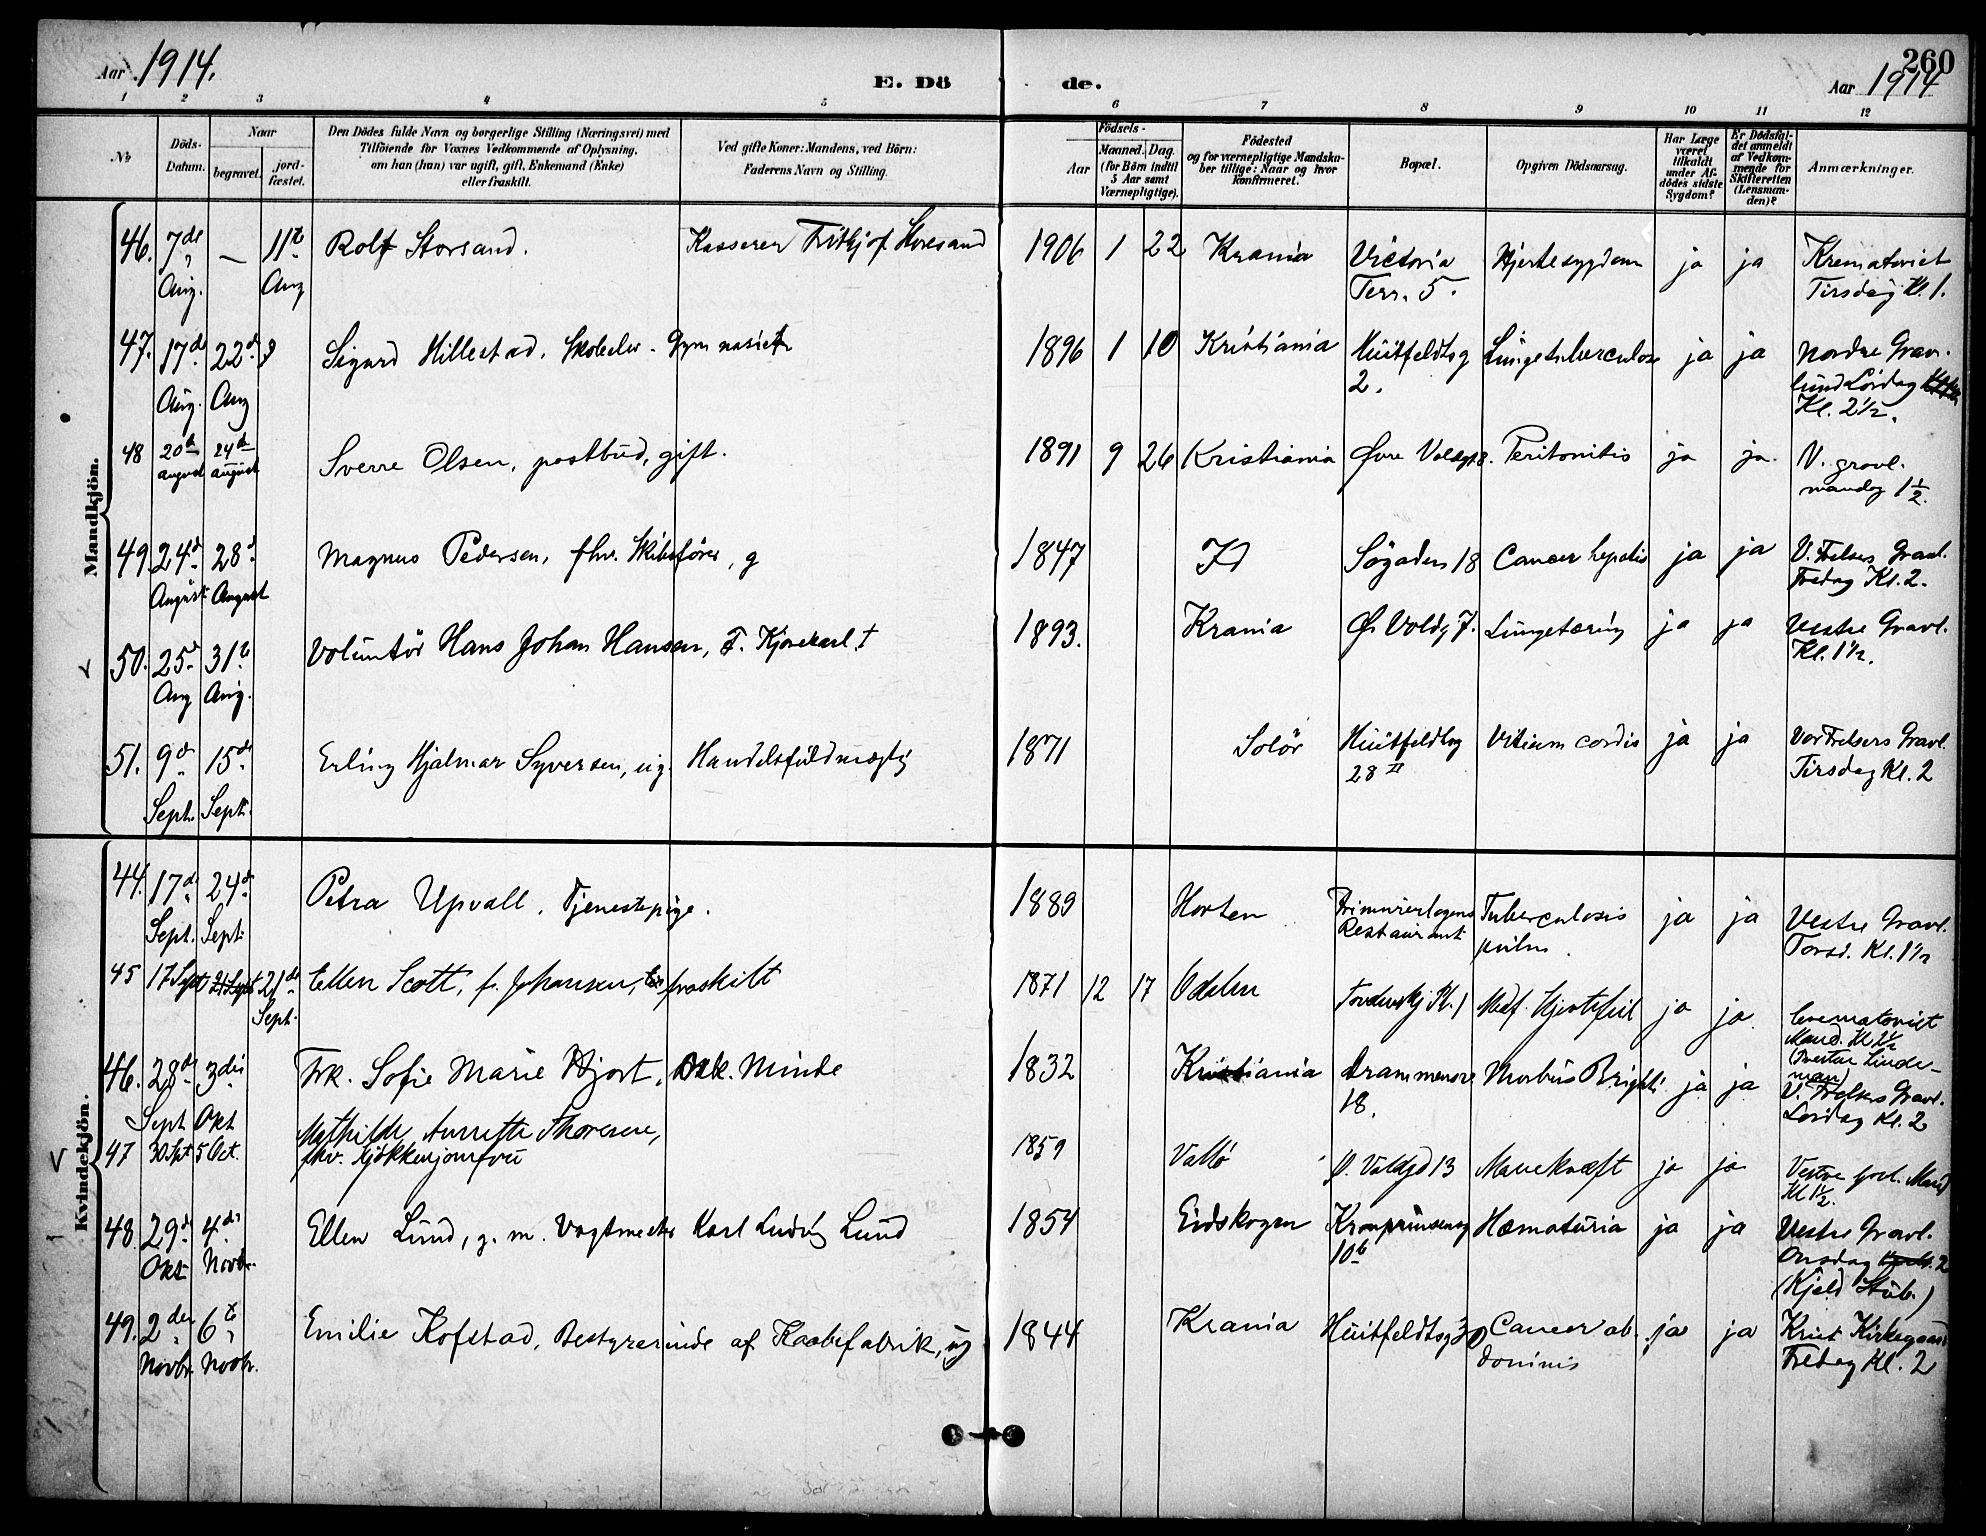 260
Aar 1914.
E. Dö
de.
Aar 1914
1 2 3 4 5 6 7 8 9 10 11 12
No
Döds-Datum.
Naar
begravet.
jord-fæstet.
Den Dödes fulde Navn og borgerlige Stilling (Næringsvei) med
Tilföiende for Voxnes Vedkommende af Oplysning,
om han (hun) var ugift, gift, Enkemand (Enke)
eller fraskilt.
Ved gifte Koner: Mandens, ved Börn:
Faderens Navn og Stilling.
Födsels-
Aar
Maaned. Dag.
(for Börn indtil
5 Aar samt
Værnepligtige).
Födested
og for værnepligtige Mandska-
ber tillige: Naar og hvor
konfirmeret.
Bopæl.
Opgiven Dödsaarsag.
Har Læge
været
tilkaldt
under Af-
dödes sidste
Sygdom?
Er Dödsfal-
det anmeldt
af Vedkom-
mende for
Skifteretten
(Lensman-
den)?
Anmærkninger.
Mandkjön.
46. 7de Aug. — 11te Aug Rolf Storsand. Kasserer Fridtjof Storesand 1906 1 22 Krania Victoria Terr. 5. Hjertesygdom ja ja Krematoriet Tirsdag Kl. 1.
47. 17de Aug. 22de Aug Sigurd Hillestad. Skoleelev - Gymnasiet 1896 1 10 Kristiania Huitfeldtsg 2. Lungetuberculose ja ja Nordre Gravlund Lördag Kl. 2 1/2.
48 20de august 24de august Sverre Olsen, postbud, gift. 1891 9 26 Kristiania Øvre Voldgt 8. Peritonitis ja ja. V. gravl. mandag 1 1/2.
49. 24de August 28de August Magnus Pedersen, fhv. Skibsförer, g 1847 Sögaden 18 Cancer hepatis ja ja V. Frelsers Gravl. Fredag Kl. 2.
50. 25de Aug 31te Aug. Voluntör Hans Johan Hansen, F. 1893. Krania Ø. Voldg 7. Lungetæring ja ja Vestre Gravl. Kl. 1 1/2.
51. 9de Sept. 15de Sept. Erling Hjalmar Syversen, ug. Handelsfuldmægtig 1871 Solör Huitfeldtsg 28 II Vitium cordis ja ja Vor Frelsers Gravl. Tirsdag Kl. 2
Kvindekjön.
44. 17de Sept. 24de Sept. Petra Upvall. Tjenestepige. 1889 Horten Frimurerlogens Restaurant Tuberculosis pulm. ja ja Vestre Gravl. Torsd. Kl. 1 1/2
45 17 Sept 21 Sept 21de Sept. Ellen Scott, f. Johansen, fraskilt 1871 12 17 Odalen Tordenskj Pl. 1 Medf. Hjertefeil ja ja. Crematoriet Mand. Kl 1 1/2 (Prestar Lindeman)
46. 28de Sept 3die Okt Frk. Sofie Marie Hjort. Minde 1832 Kristiania Drammensv 18. Morbus Brighti ja ja V. Frelsers Gravl. Lördag Kl. 2
47 30 Spt 5 Oct. Mathilde Annette Thoresen, fhv. Kjökkenjomfru 1859 Vallö Ø. Voldgd 13 Mavekræft ja ja Vestre gravl. Mand Kl 1 1/2.
48. 29de Okt 4de Novbr. Ellen Lund, g. m. Vagtmester Karl Ludvig Lund 1854 Eidskogen Kronprinsensg 10b Hæmaturia ja ja Vestre Gravl. Onsdag Kl. 2 (Kjeld Stub.)
49. 2den Novbr. 6te Novbr. Emilie Kofstad, Bestyrerinde af Kaabefabrik, ug 1844 Krania Huitfeldtsg 30 Cancer abdominis ja ja Krist Kirkegaard Fredag Kl. 2